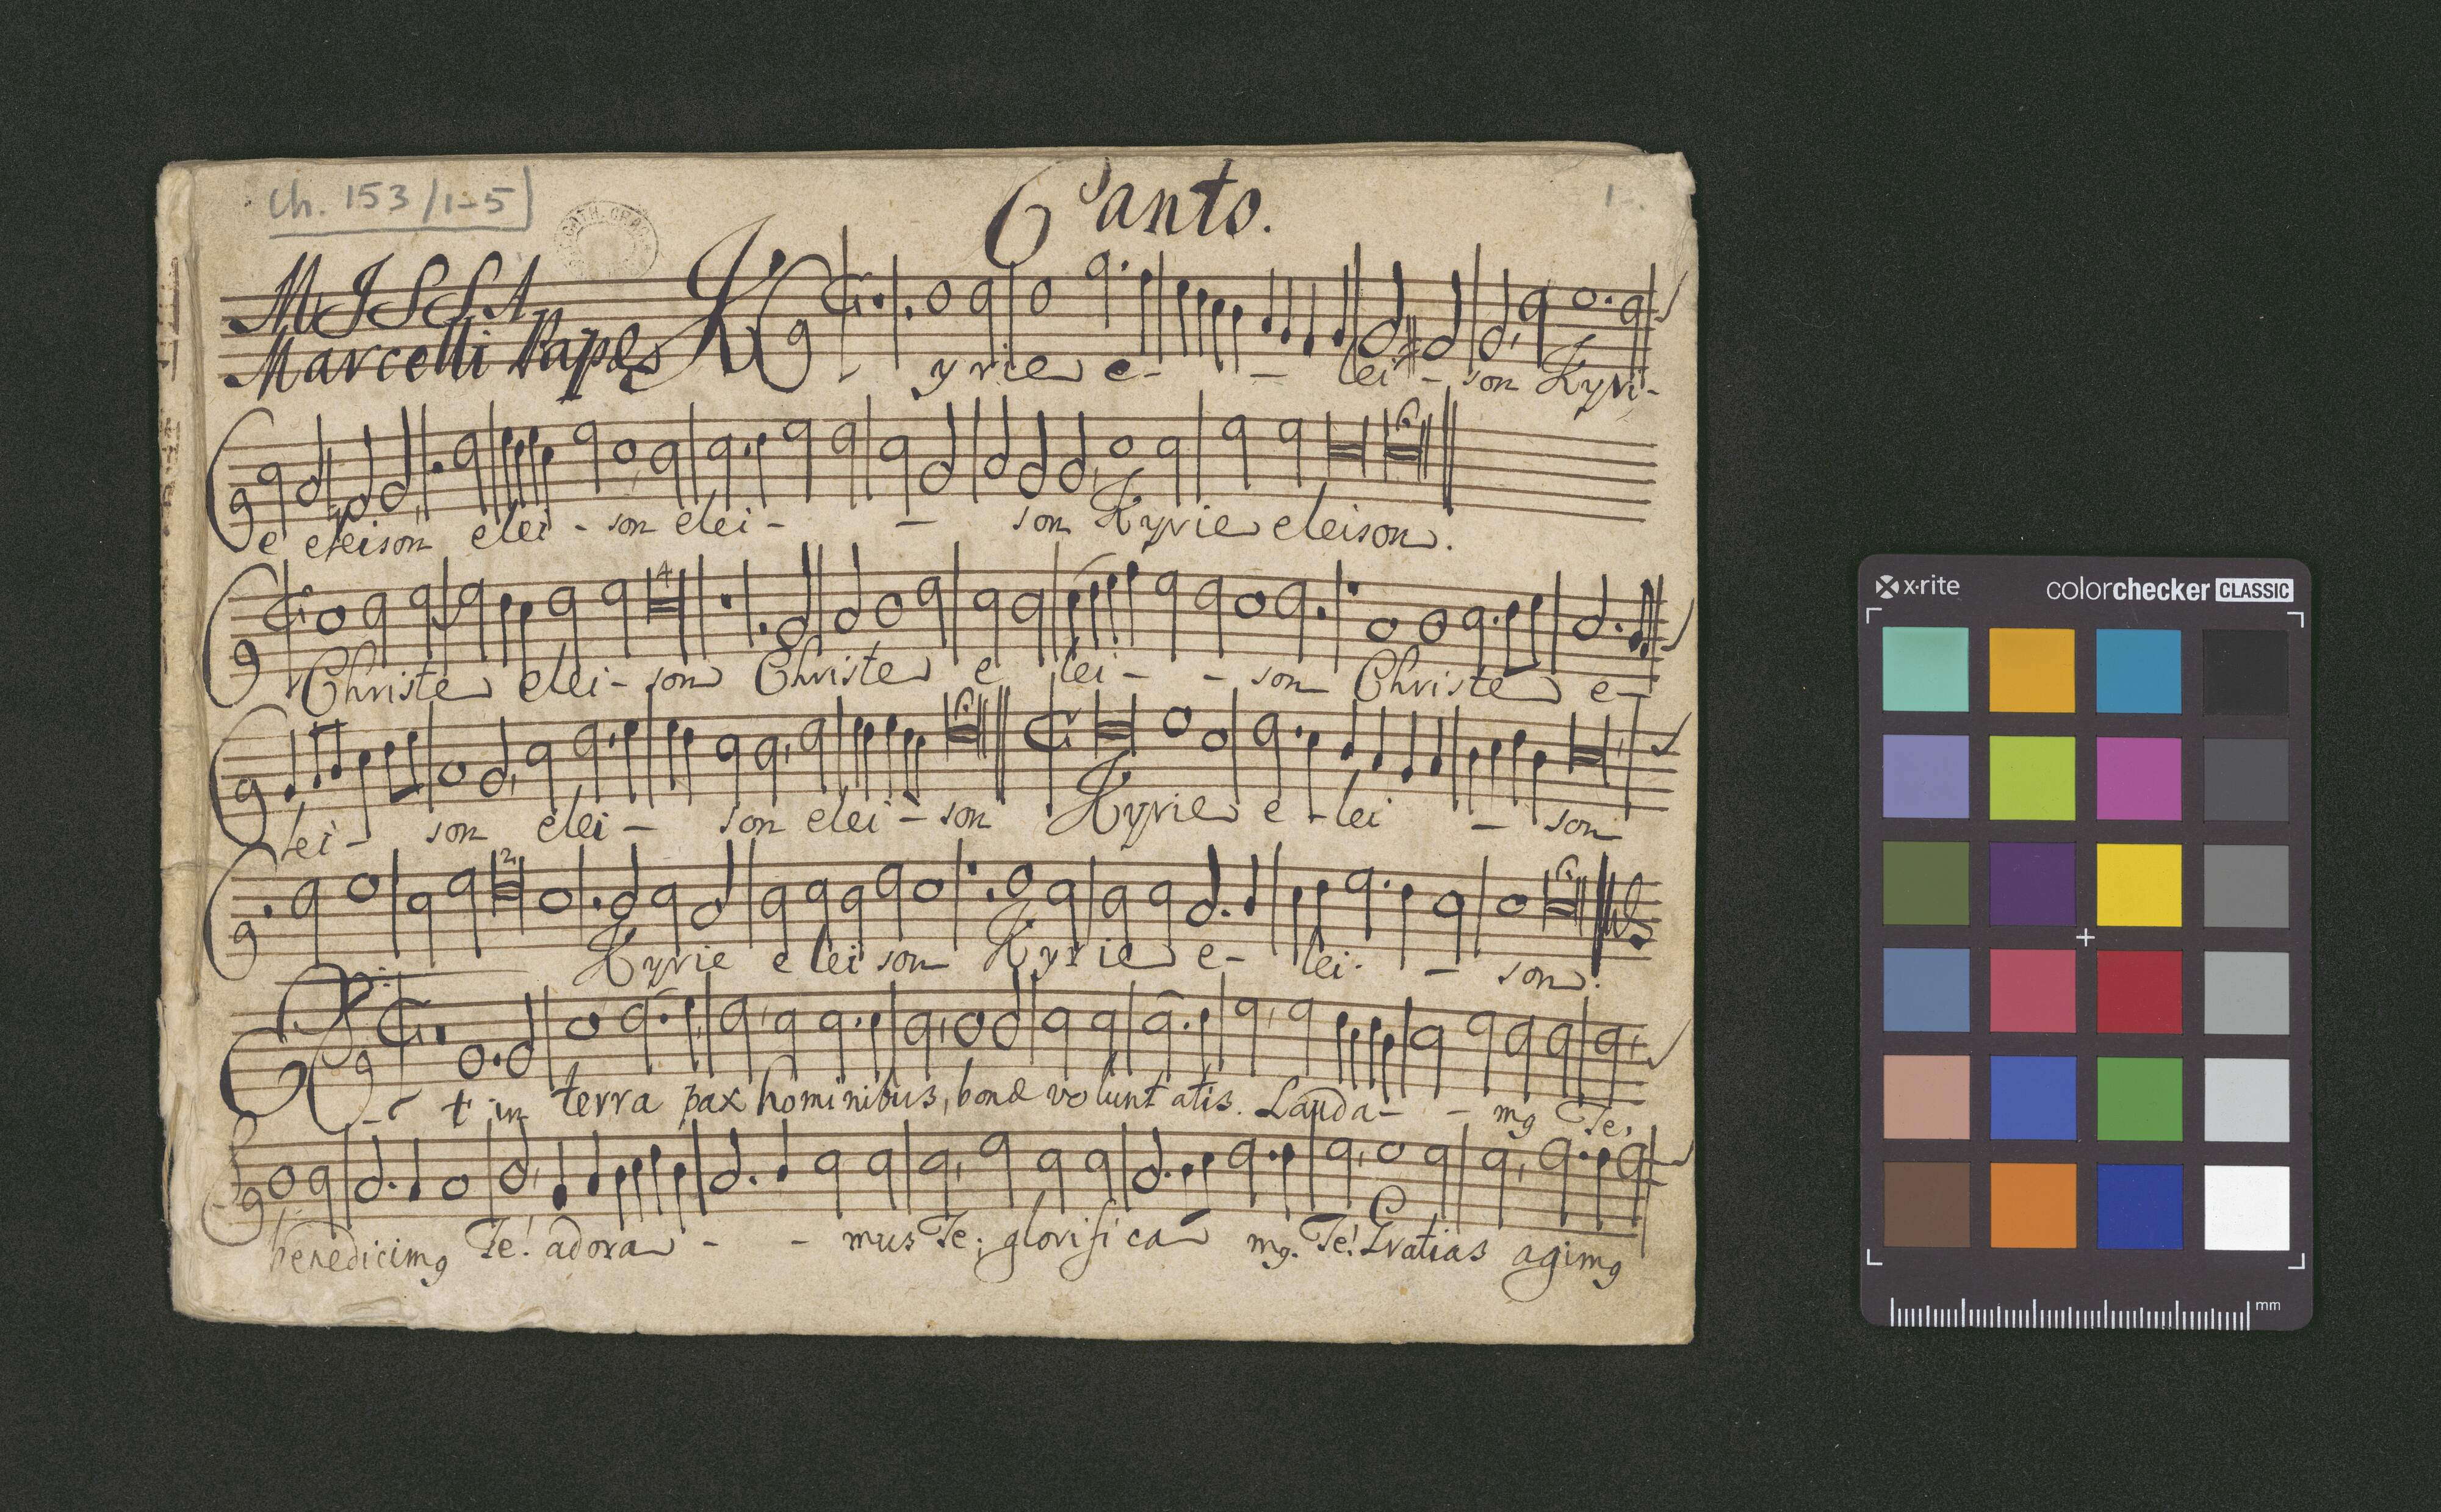 Ch. 153/1-5
Canto.
1.
MISSA
Marcelli Papæ
Kyrie e - - lei - son Kyri-
e eleison elei - son elei - - son Kyrie eleison.
4
Christe elei - son Christe e lei - - son Christe e -
lei - son elei - son elei - son Kyrie e - lei - son
2
Kyrie elei son Kyrie e - lei - - son.
Et in terra pax hominibus, bonæ voluntatis. Lauda - - mg Te,
benedicimg Te! adora - - mus Te; glorifica mg. Te! Gratias agimg
x·rite
colorchecker CLASSIC
mm